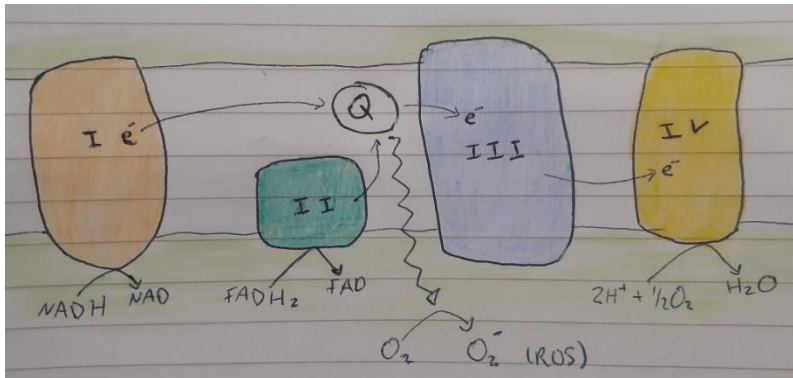 Q
I e⁻
e⁻
III
IV
e⁻
II
NADH NAD
FADH₂ FAD
2H⁺ + ½O₂ H₂O
O₂ O₂⁻ (ROS)